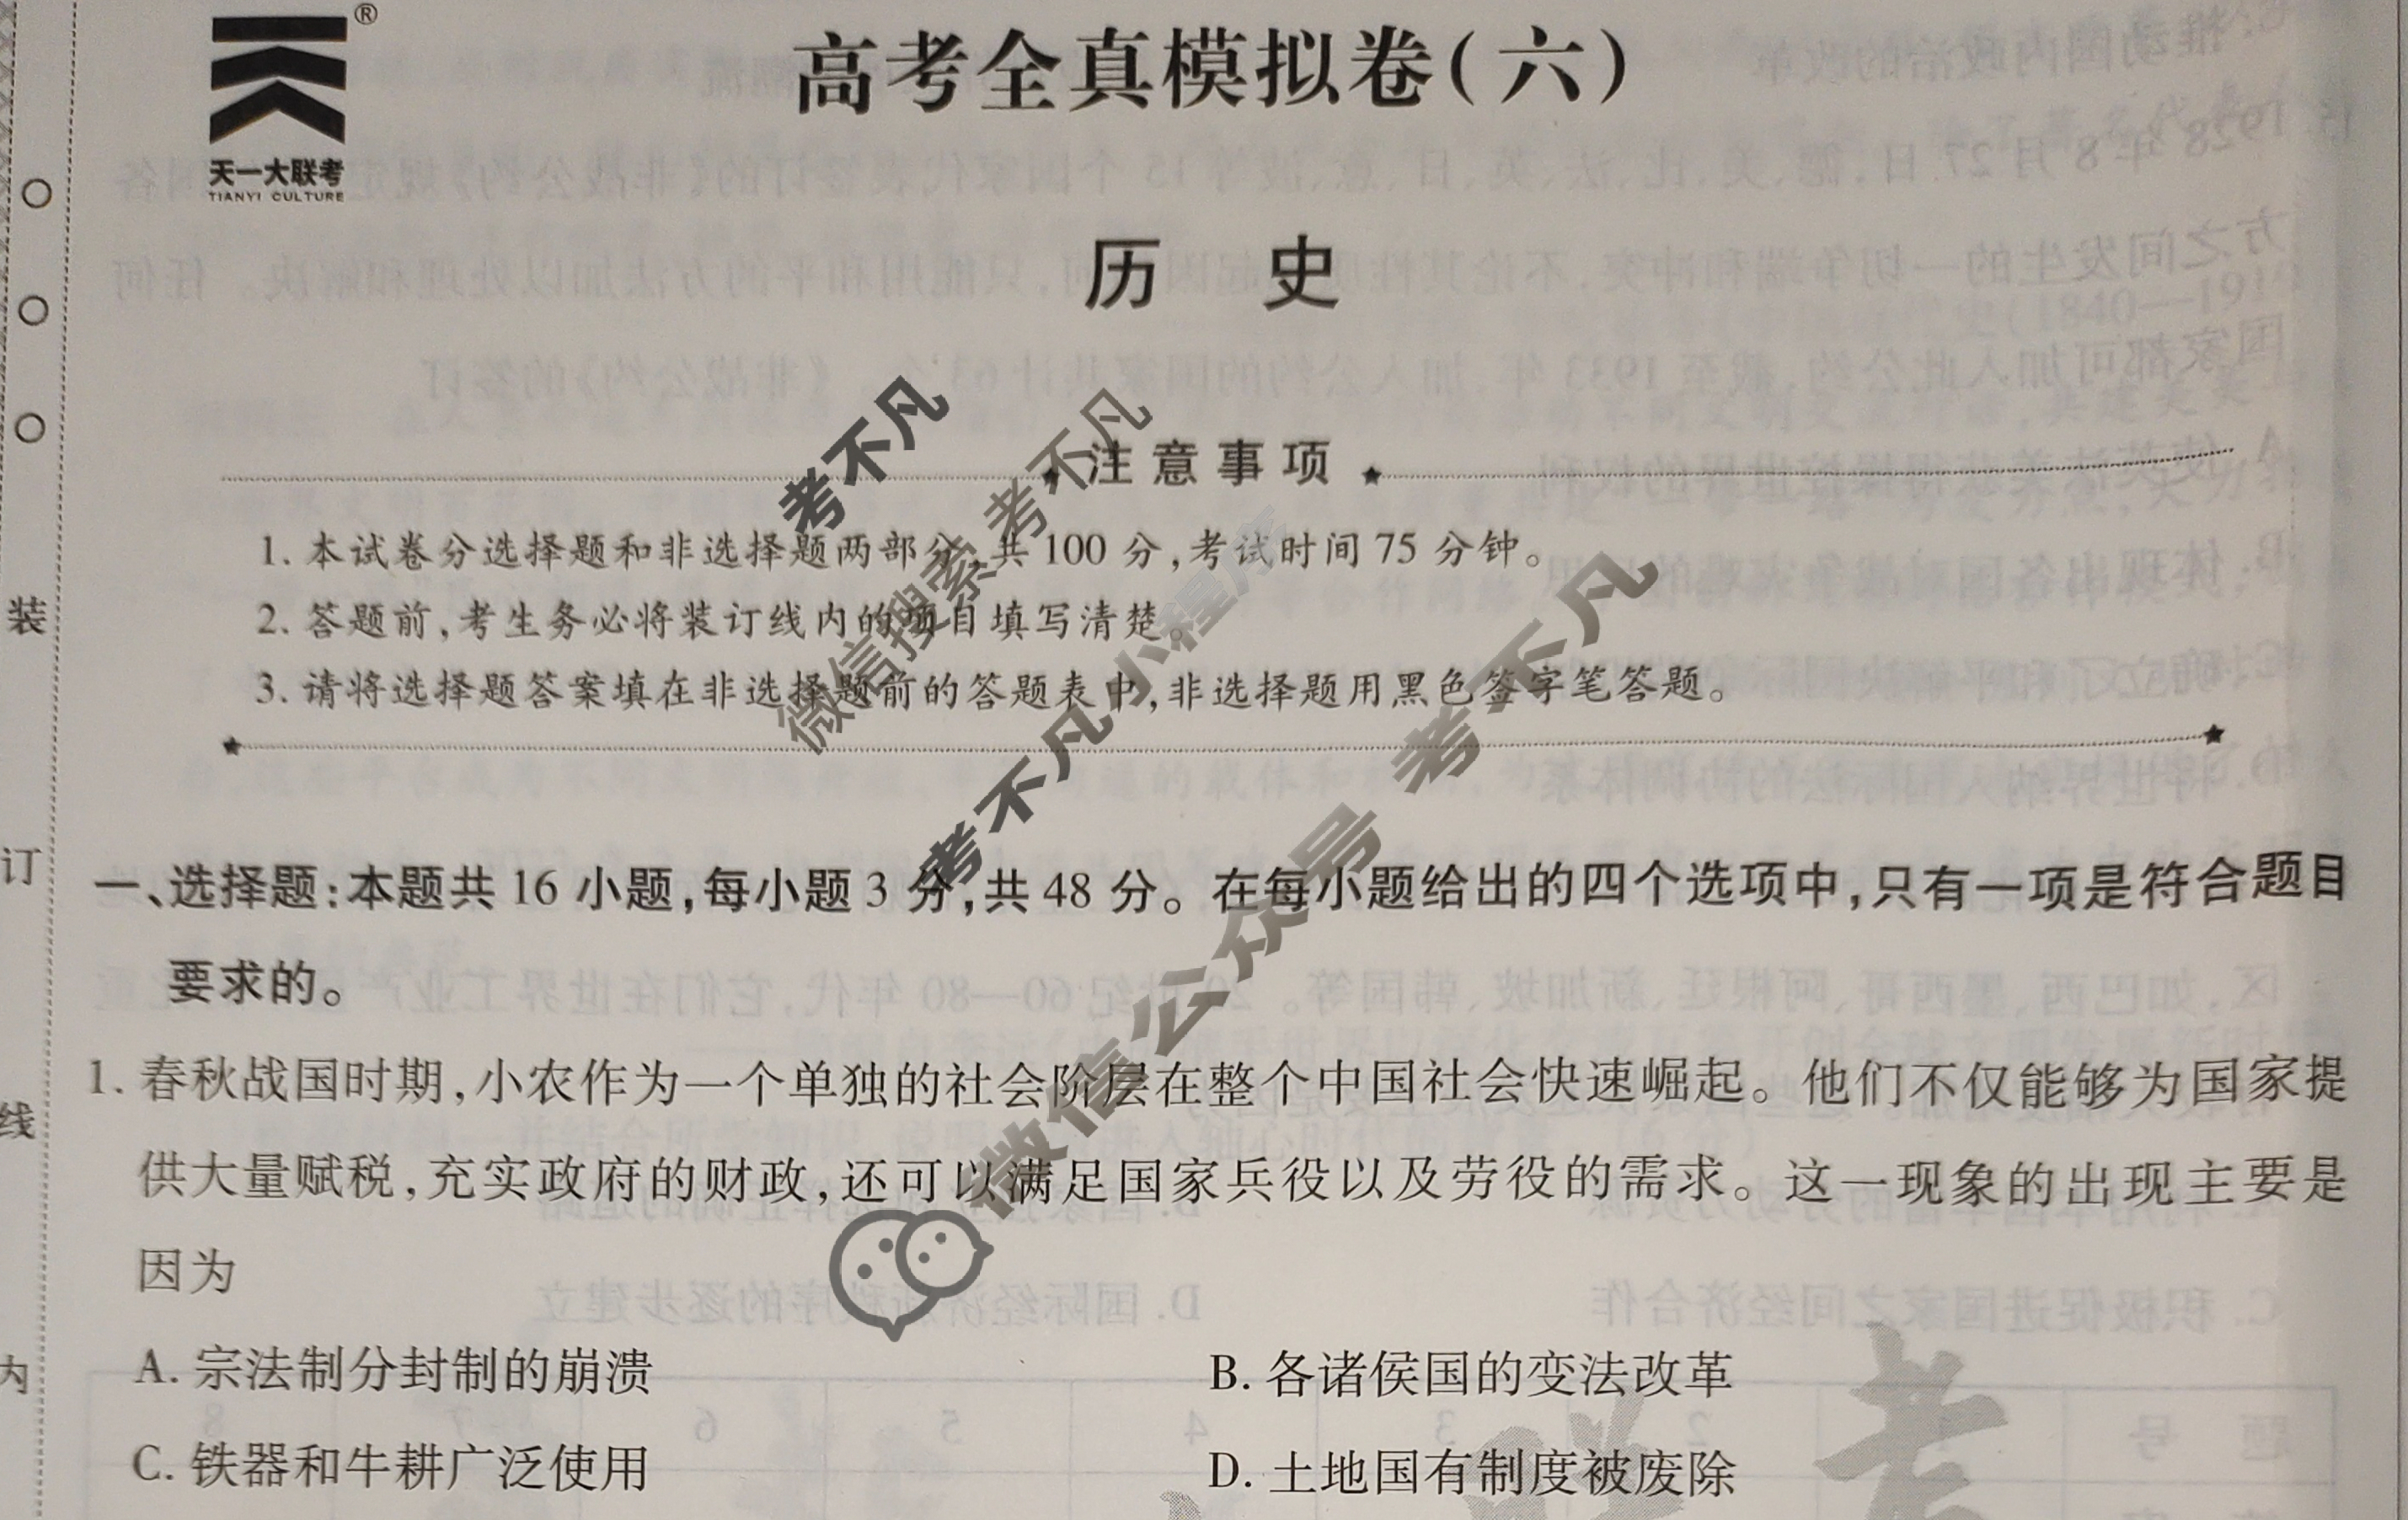 ®
天一大联考
TIANYI CULTURE
高考全真模拟卷(六)
历 史
注意事项
1. 本试卷分选择题和非选择题两部分,共100分,考试时间75分钟。
2. 答题前,考生务必将装订线内的项目填写清楚。
3. 请将选择题答案填在非选择题前的答题表中,非选择题用黑色签字笔答题。
一、选择题:本题共16小题,每小题3分,共48分。在每小题给出的四个选项中,只有一项是符合题目
要求的。
1. 春秋战国时期,小农作为一个单独的社会阶层在整个中国社会快速崛起。他们不仅能够为国家提
供大量赋税,充实政府的财政,还可以满足国家兵役以及劳役的需求。这一现象的出现主要是
因为
A. 宗法制分封制的崩溃
B. 各诸侯国的变法改革
C. 铁器和牛耕广泛使用
D. 土地国有制度被废除
装
订
线
内
考不凡
微信搜索 考不凡
考不凡小程序
微信公众号 考不凡
联考